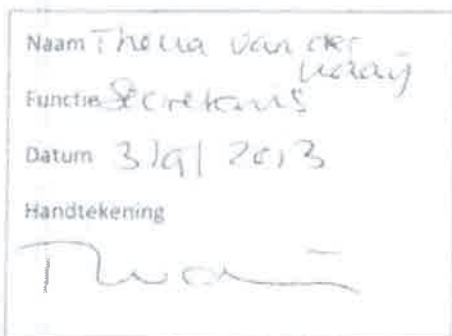 Naam Thea van der
Functie Secretaris
Datum 3/9/2013
Handtekening